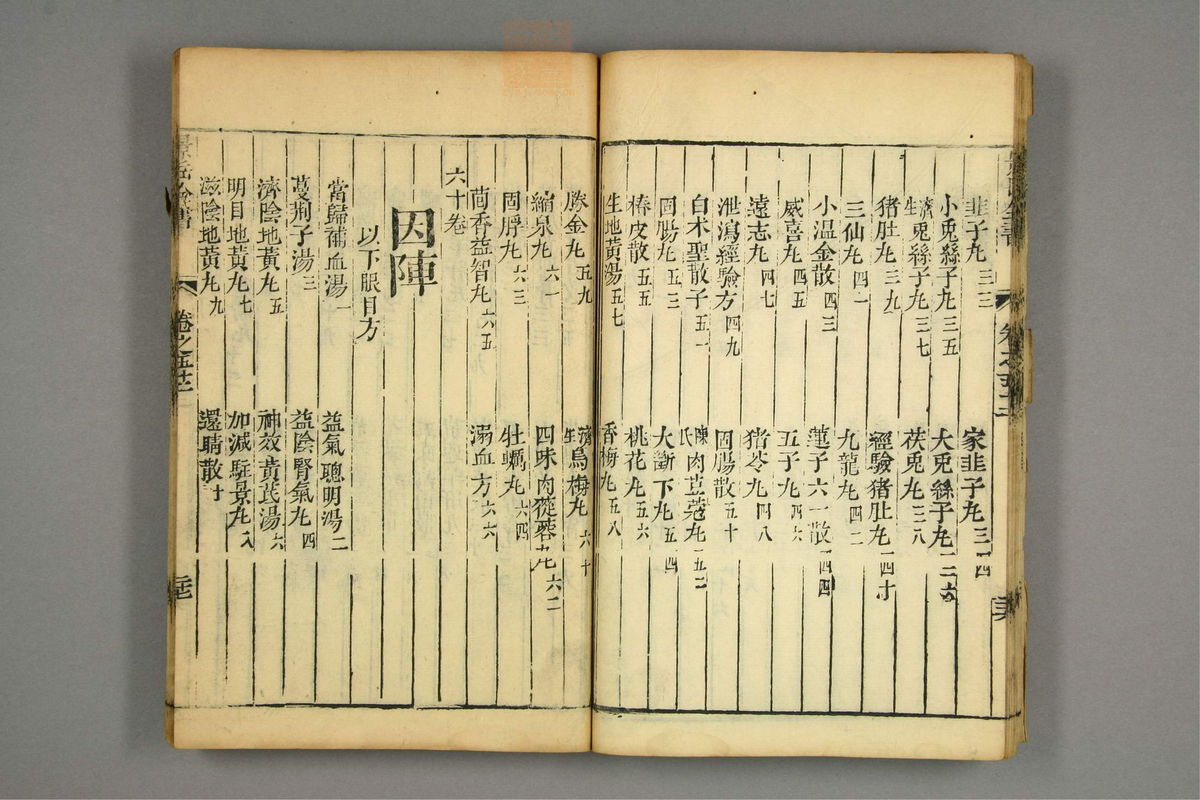 韭子丸 三三
家韭子丸 三四
小兎絲子丸 三五
大兎絲子丸 三六
濟生兎絲子丸 三七
茯兎丸 三八
猪肚丸 三九
經驗猪肚丸 四十
三仙丸 四一
九龍丸 四二
小温金散 四三
蓮子六一散 四四
威喜丸 四五
五子丸 四六
遠志丸 四七
猪苓丸 四八
泄瀉經驗方 四九
固腸散 五十
白术聖散子 五一
陳氏肉荳蔻丸 五二
固腸丸 五三
大斷下丸 五四
椿皮散 五五
桃花丸 五六
生地黃湯 五七
香梅丸 五八
勝金丸 五九
濟生烏梅丸 六十
縮泉丸 六一
四味肉蓯蓉丸 六二
固脬丸 六三
牡蠣丸 六四
茴香益智丸 六五
溺血方 六六
六十卷
因陣
以下眼目方
當歸補血湯 一
益氣聰明湯 二
蔓荆子湯 三
益陰腎氣丸 四
濟陰地黃丸 五
神效黃芪湯 六
明目地黃丸 七
加減駐景丸 八
滋陰地黃丸 九
還睛散 十
卷之五十二